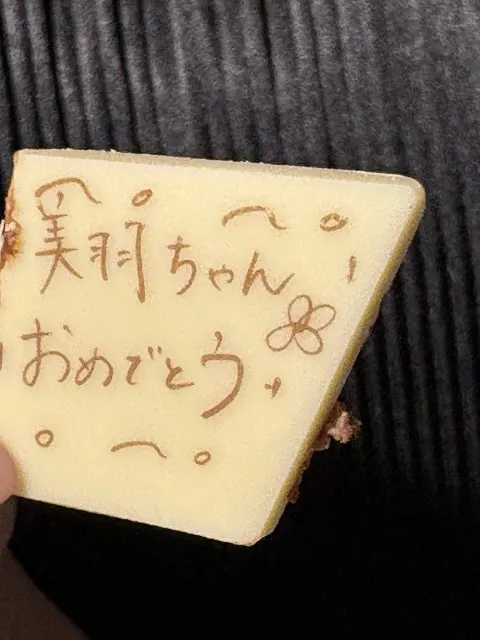 美羽ちゃん
おめでとう